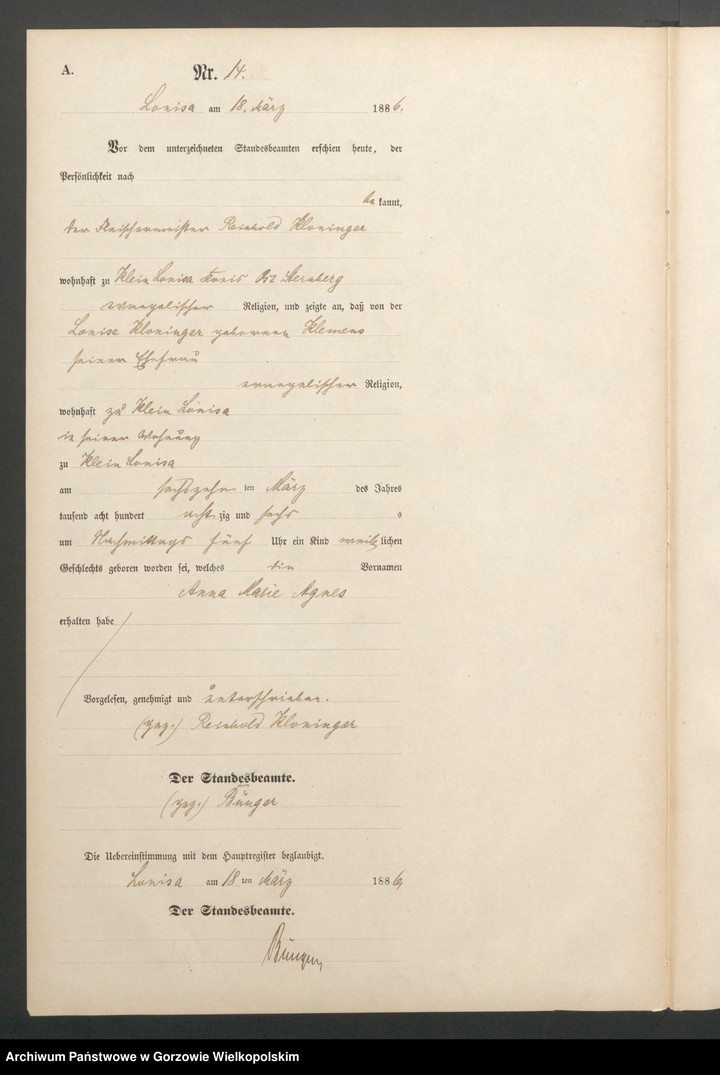 A.
Nr. 14.
Lonisa am 18. März 1886.
Vor dem unterzeichneten Standesbeamten erschien heute, der
Persönlichkeit nach
bekannt,
der Fleischermeister Reinhold Kloninger
wohnhaft zu Klein Lonisa Kreis Ost Sternberg
evangelischer Religion, und zeigte an, daß von der
Lonise Kloninger geborenen Klemens
seiner Ehefrau
evangelischer Religion,
wohnhaft zu Klein Lonisa
in seiner Wohnung
zu Klein Lonisa
am sechszehn ten März des Jahres
tausend acht hundert acht zig und sechs s
um Nachmittags fünf Uhr ein Kind weiblichen
Geschlechts geboren worden sei, welches die Vornamen
Anna Marie Agnes
erhalten habe
Vorgelesen, genehmigt und unterschrieben.
(gez.) Reinhold Kloninger
Der Standesbeamte.
(gez.) Bünger
Die Uebereinstimmung mit dem Hauptregister beglaubigt.
Lonisa am 18 ten März 1886
Der Standesbeamte.
Bünger
Archiwum Państwowe w Gorzowie Wielkopolskim